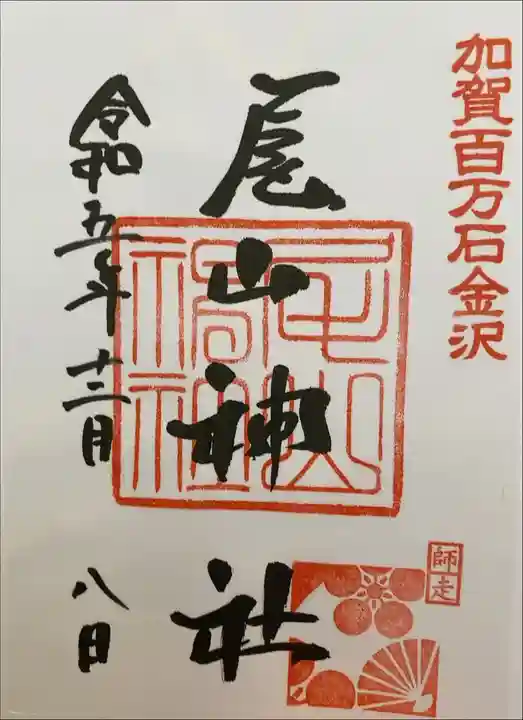 加賀百万石金沢
尾山神社
師走
令和五年十二月
八日